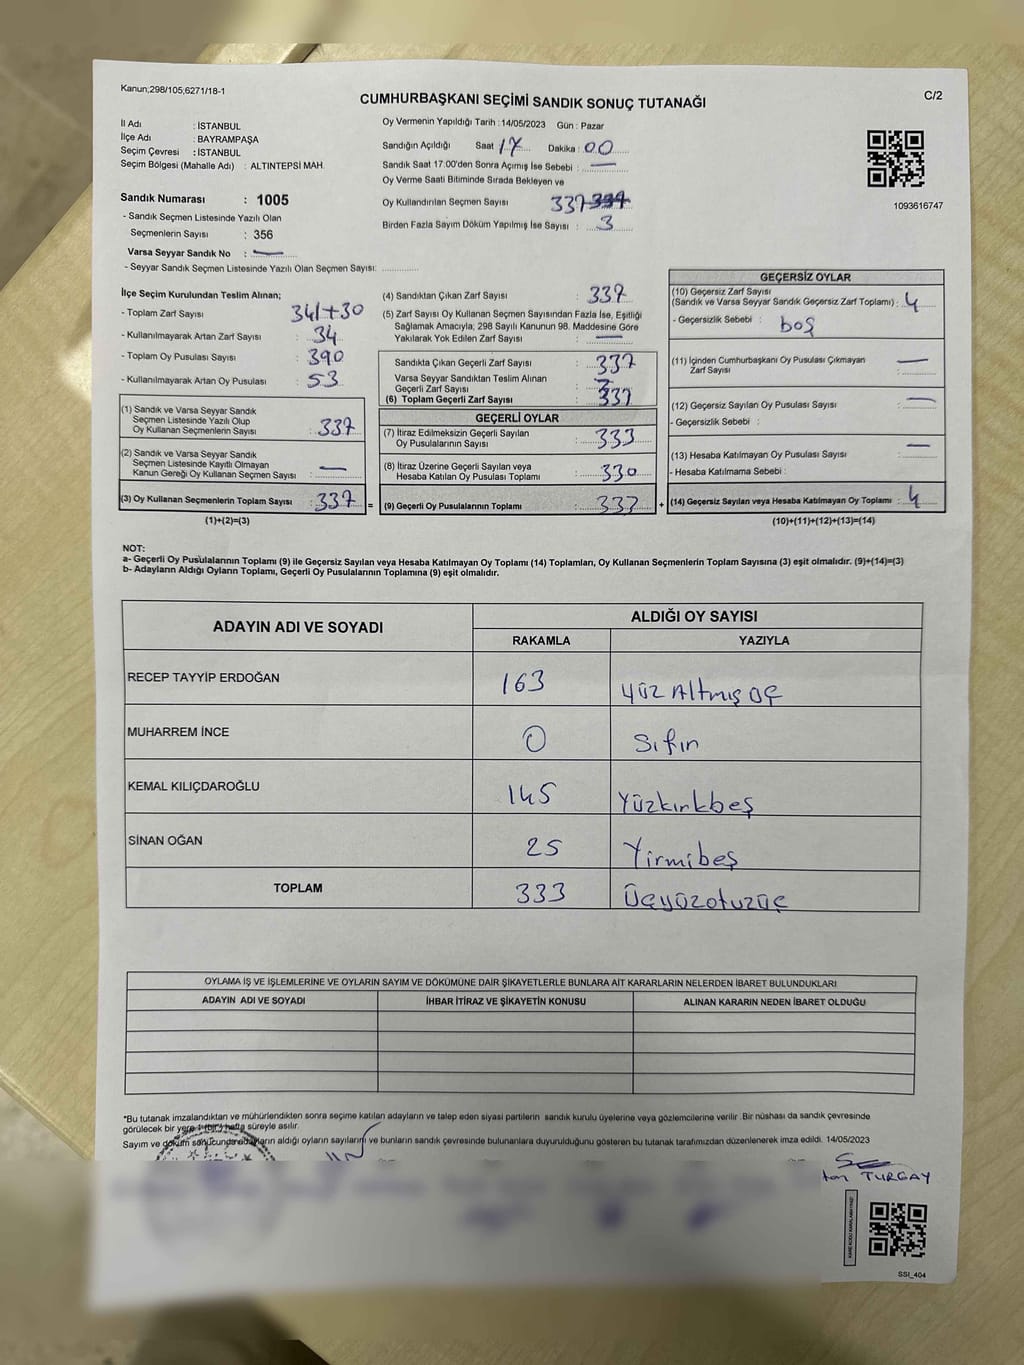 Kanun;298/105;6271/18-1
C/2
CUMHURBAŞKANI SEÇİMİ SANDIK SONUÇ TUTANAĞI
İl Adı : İSTANBUL
İlçe Adı : BAYRAMPAŞA
Seçim Çevresi : İSTANBUL
Seçim Bölgesi (Mahalle Adı) : ALTINTEPSİ MAH.
Oy Vermenin Yapıldığı Tarih : 14/05/2023 Gün : Pazar
Sandığın Açıldığı Saat 17 Dakika : 00
Sandık Saat 17:00'den Sonra Açımış İse Sebebi : —
Oy Verme Saati Bitiminde Sırada Bekleyen ve
Oy Kullandırılan Seçmen Sayısı 337
Birden Fazla Sayım Döküm Yapılmış İse Sayısı : 3
1093616747
Sandık Numarası : 1005
- Sandık Seçmen Listesinde Yazılı Olan
Seçmenlerin Sayısı : 356
Varsa Seyyar Sandık No : —
- Seyyar Sandık Seçmen Listesinde Yazılı Olan Seçmen Sayısı:
İlçe Seçim Kurulundan Teslim Alınan;
- Toplam Zarf Sayısı 341+30
- Kullanılmayarak Artan Zarf Sayısı : 34
- Toplam Oy Pusulası Sayısı : 390
- Kullanılmayarak Artan Oy Pusulası : 53
(1) Sandık ve Varsa Seyyar Sandık
Seçmen Listesinde Yazılı Olup
Oy Kullanan Seçmenlerin Sayısı : 337
(2) Sandık ve Varsa Seyyar Sandık
Seçmen Listesinde Kayıtlı Olmayan
Kanun Gereği Oy Kullanan Seçmen Sayısı : —
(3) Oy Kullanan Seçmenlerin Toplam Sayısı : 337 =
(1)+(2)=(3)
(4) Sandıktan Çıkan Zarf Sayısı : 337
(5) Zarf Sayısı Oy Kullanan Seçmen Sayısından Fazla İse, Eşitliği
Sağlamak Amacıyla; 298 Sayılı Kanunun 98. Maddesine Göre
Yakılarak Yok Edilen Zarf Sayısı : —
Sandıkta Çıkan Geçerli Zarf Sayısı : 337
Varsa Seyyar Sandıktan Teslim Alınan
Geçerli Zarf Sayısı :
(6) Toplam Geçerli Zarf Sayısı : 337
GEÇERLİ OYLAR
(7) İtiraz Edilmeksizin Geçerli Sayılan
Oy Pusulalarının Sayısı : 333
(8) İtiraz Üzerine Geçerli Sayılan veya
Hesaba Katılan Oy Pusulası Toplamı : 330
(9) Geçerli Oy Pusulalarının Toplamı : 333 +
GEÇERSİZ OYLAR
(10) Geçersiz Zarf Sayısı
(Sandık ve Varsa Seyyar Sandık Geçersiz Zarf Toplamı) : 4
- Geçersizlik Sebebi : boş
(11) İçinden Cumhurbaşkanı Oy Pusulası Çıkmayan
Zarf Sayısı : —
(12) Geçersiz Sayılan Oy Pusulası Sayısı : —
- Geçersizlik Sebebi :
(13) Hesaba Katılmayan Oy Pusulası Sayısı : —
- Hesaba Katılmama Sebebi :
(14) Geçersiz Sayılan veya Hesaba Katılmayan Oy Toplamı : 4
(10)+(11)+(12)+(13)=(14)
NOT:
a- Geçerli Oy Pusulalarının Toplamı (9) ile Geçersiz Sayılan veya Hesaba Katılmayan Oy Toplamı (14) Toplamları, Oy Kullanan Seçmenlerin Toplam Sayısına (3) eşit olmalıdır. (9)+(14)=(3)
b- Adayların Aldığı Oyların Toplamı, Geçerli Oy Pusulalarının Toplamına (9) eşit olmalıdır.
ADAYIN ADI VE SOYADI
ALDIĞI OY SAYISI
RAKAMLA YAZIYLA
RECEP TAYYİP ERDOĞAN 163 yüz Altmış üç
MUHARREM İNCE 0 Sıfır
KEMAL KILIÇDAROĞLU 145 Yüzkırkbeş
SİNAN OĞAN 25 Yirmibeş
TOPLAM 333 Üçyüzotuzüç
OYLAMA İŞ VE İŞLEMLERİNE VE OYLARIN SAYIM VE DÖKÜMÜNE DAİR ŞİKAYETLERLE BUNLARA AİT KARARLARIN NELERDEN İBARET BULUNDUKLARI
ADAYIN ADI VE SOYADI İHBAR İTİRAZ VE ŞİKAYETİN KONUSU ALINAN KARARIN NEDEN İBARET OLDUĞU
*Bu tutanak imzalandıktan ve mühürlendikten sonra seçime katılan adayların ve talep eden siyasi partilerin sandık kurulu üyelerine veya gözlemcilerine verilir .Bir nüshası da sandık çevresinde
görülecek bir yere 1 (bir) hafta süreyle asılır.
Sayım ve döküm sonucunda adayların aldığı oyların sayılarını ve bunların sandık çevresinde bulunanlara duyurulduğunu gösteren bu tutanak tarafımızdan düzenlenerek imza edildi. 14/05/2023
TURGAY
SSI_404